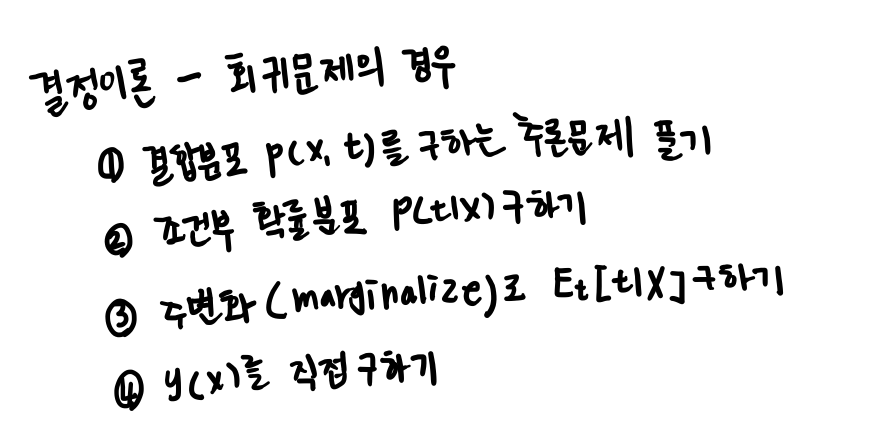 결정이론 - 회귀문제의 경우
① 결합분포 p(x, t)를 구하는 추론문제 풀기
② 조건부 확률분포 p(t|x) 구하기
③ 주변화 (marginalize)로 Et[t|x] 구하기
④ y(x)를 직접 구하기